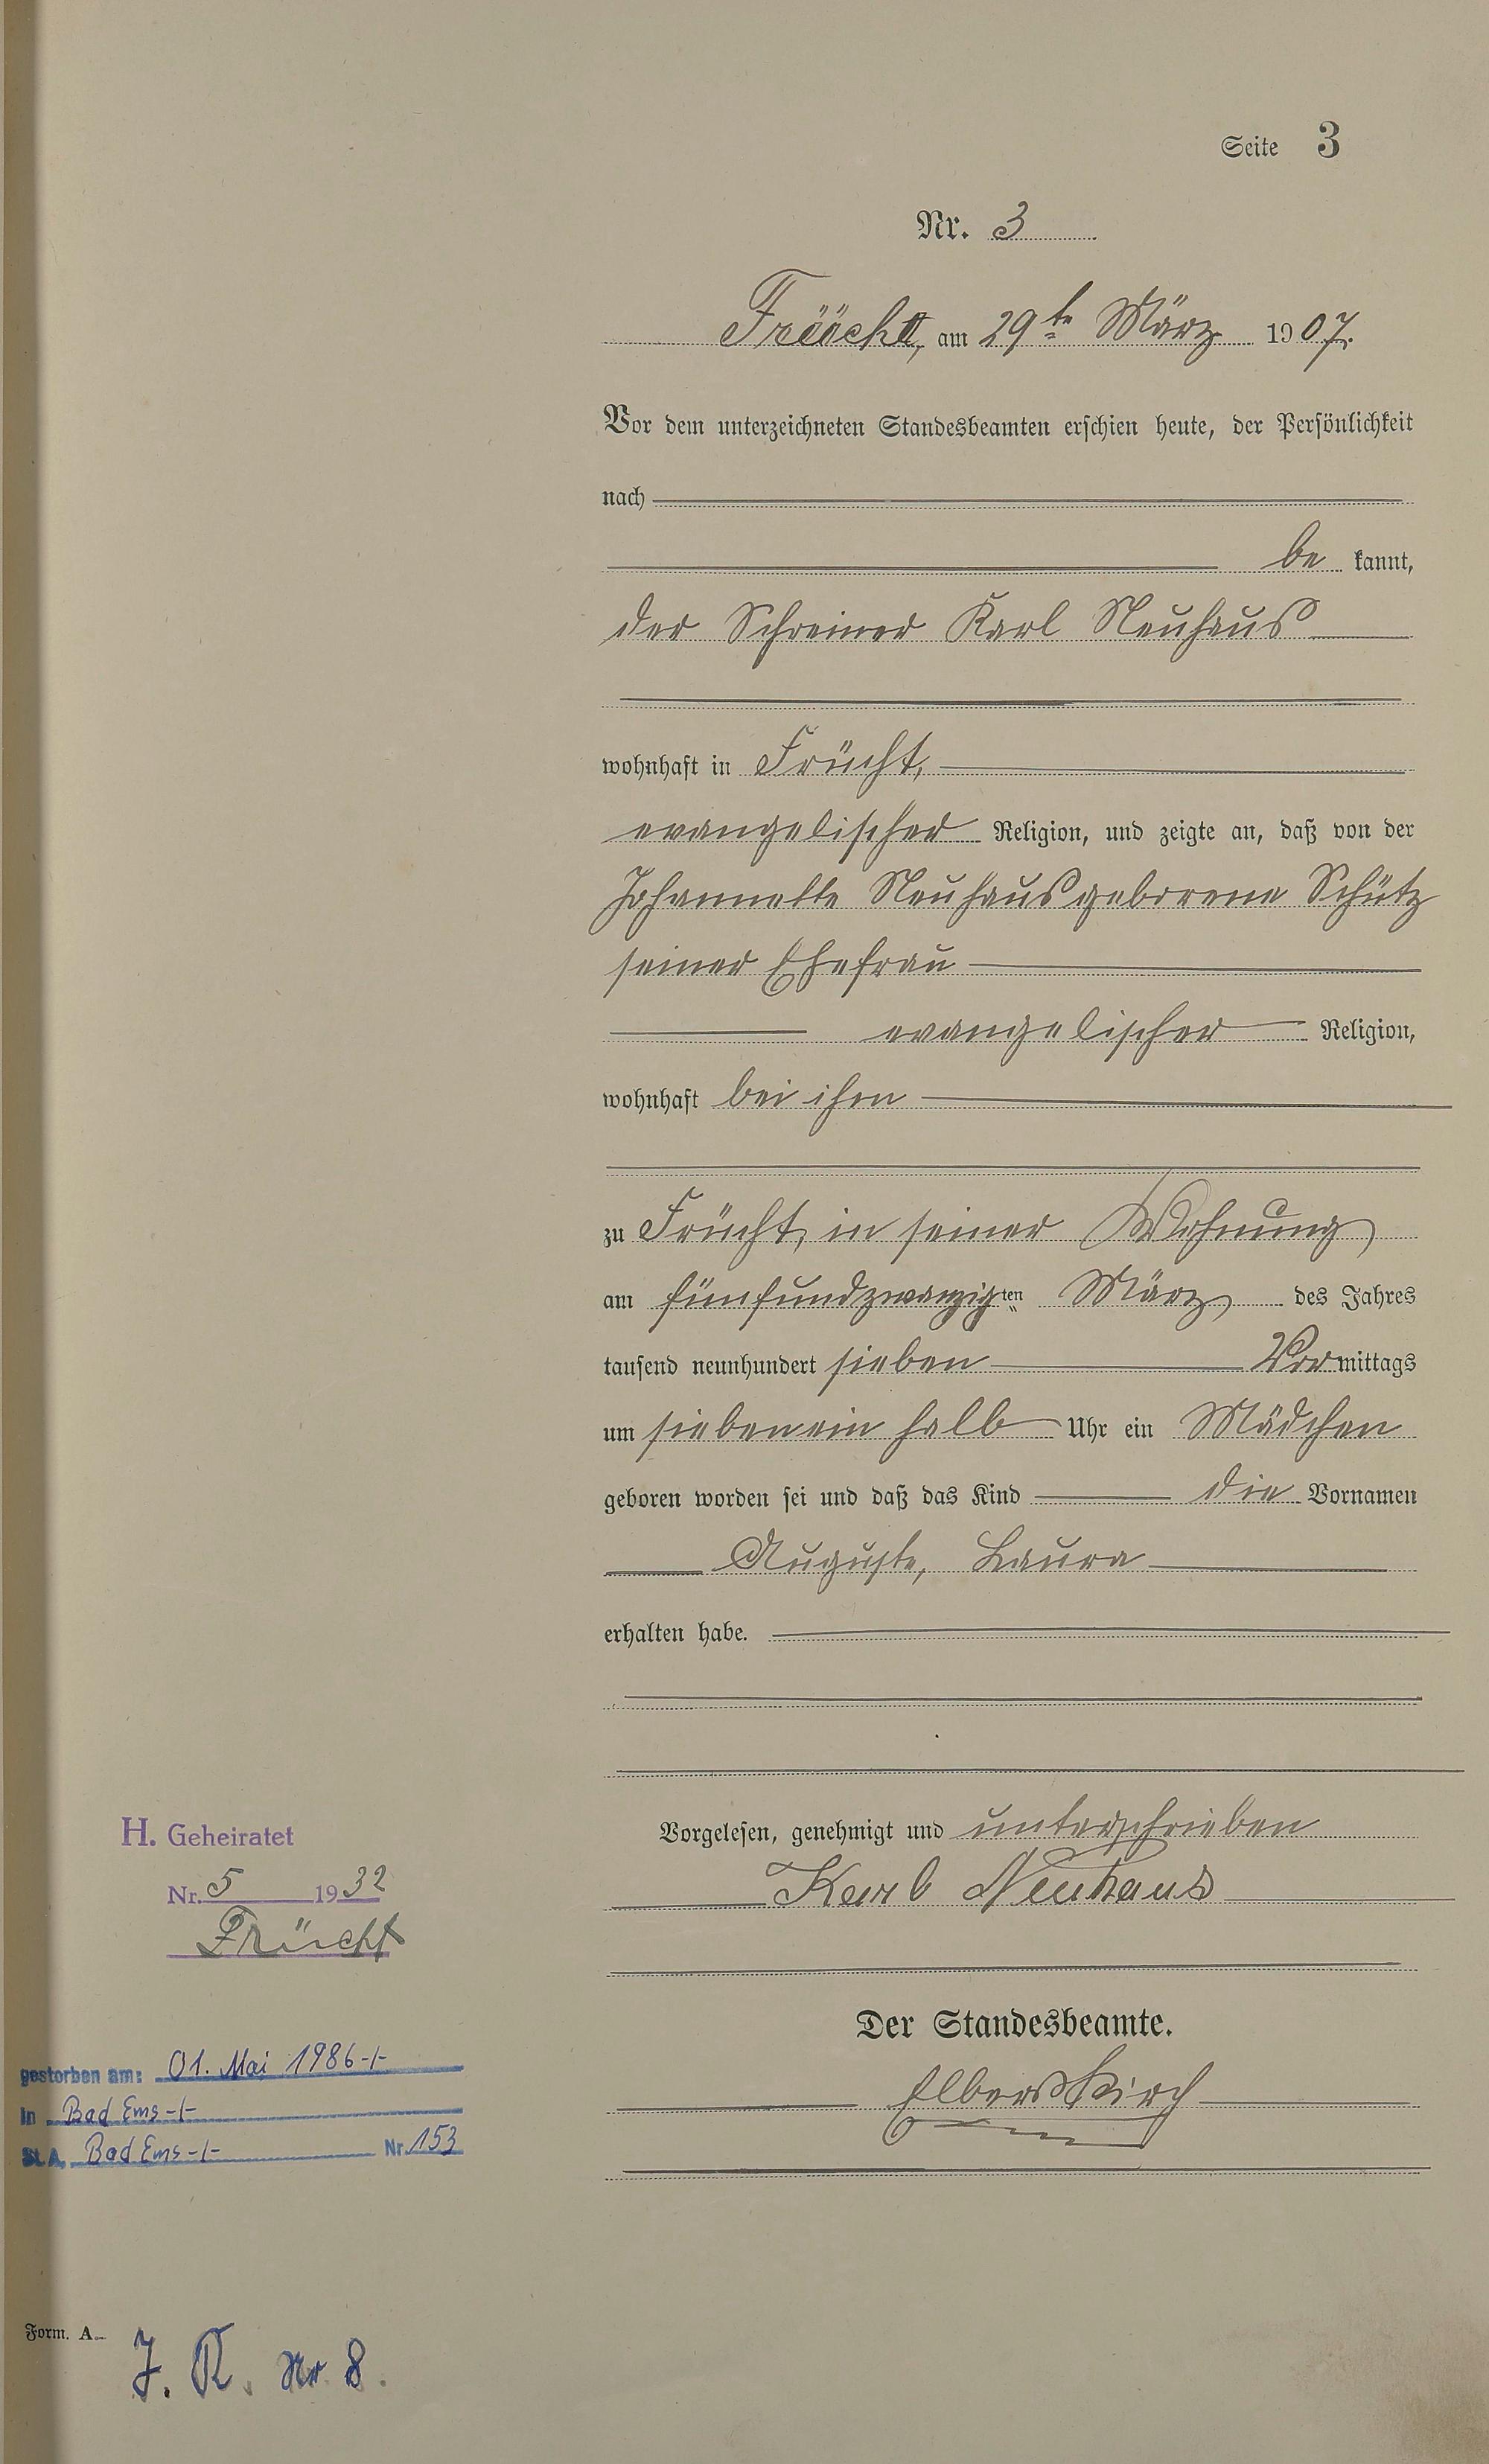 Seite 3
Nr. 3
Früecht, am 29te März 1907.
Vor dem unterzeichneten Standesbeamten erschien heute, der Persönlichkeit
nach
be kannt,
der Schreiner Karl Neuhaus
wohnhaft in Frücht,
evangelischer Religion, und zeigte an, daß von der
Johannette Neuhaus geborene Schütz
seiner Ehefrau
evangelischer Religion,
wohnhaft bei ihm
zu Frücht, in seiner Wohnung
am fünfundzwanzigten März des Jahres
tausend neunhundert sieben Vormittags
um siebenein halb Uhr ein Mädchen
geboren worden sei und daß das Kind die Vornamen
Auguste, Laura
erhalten habe.
Vorgelesen, genehmigt und unterschrieben
Karl Neuhaus
Der Standesbeamte.
Elberskirch
H. Geheiratet
Nr. 5 1932
Frücht
gestorben am: 01. Mai 1986-/-
in Bad Ems-/-
St.A. Bad Ems-/- Nr. 153
Form. A.
J. R. Nr 8.